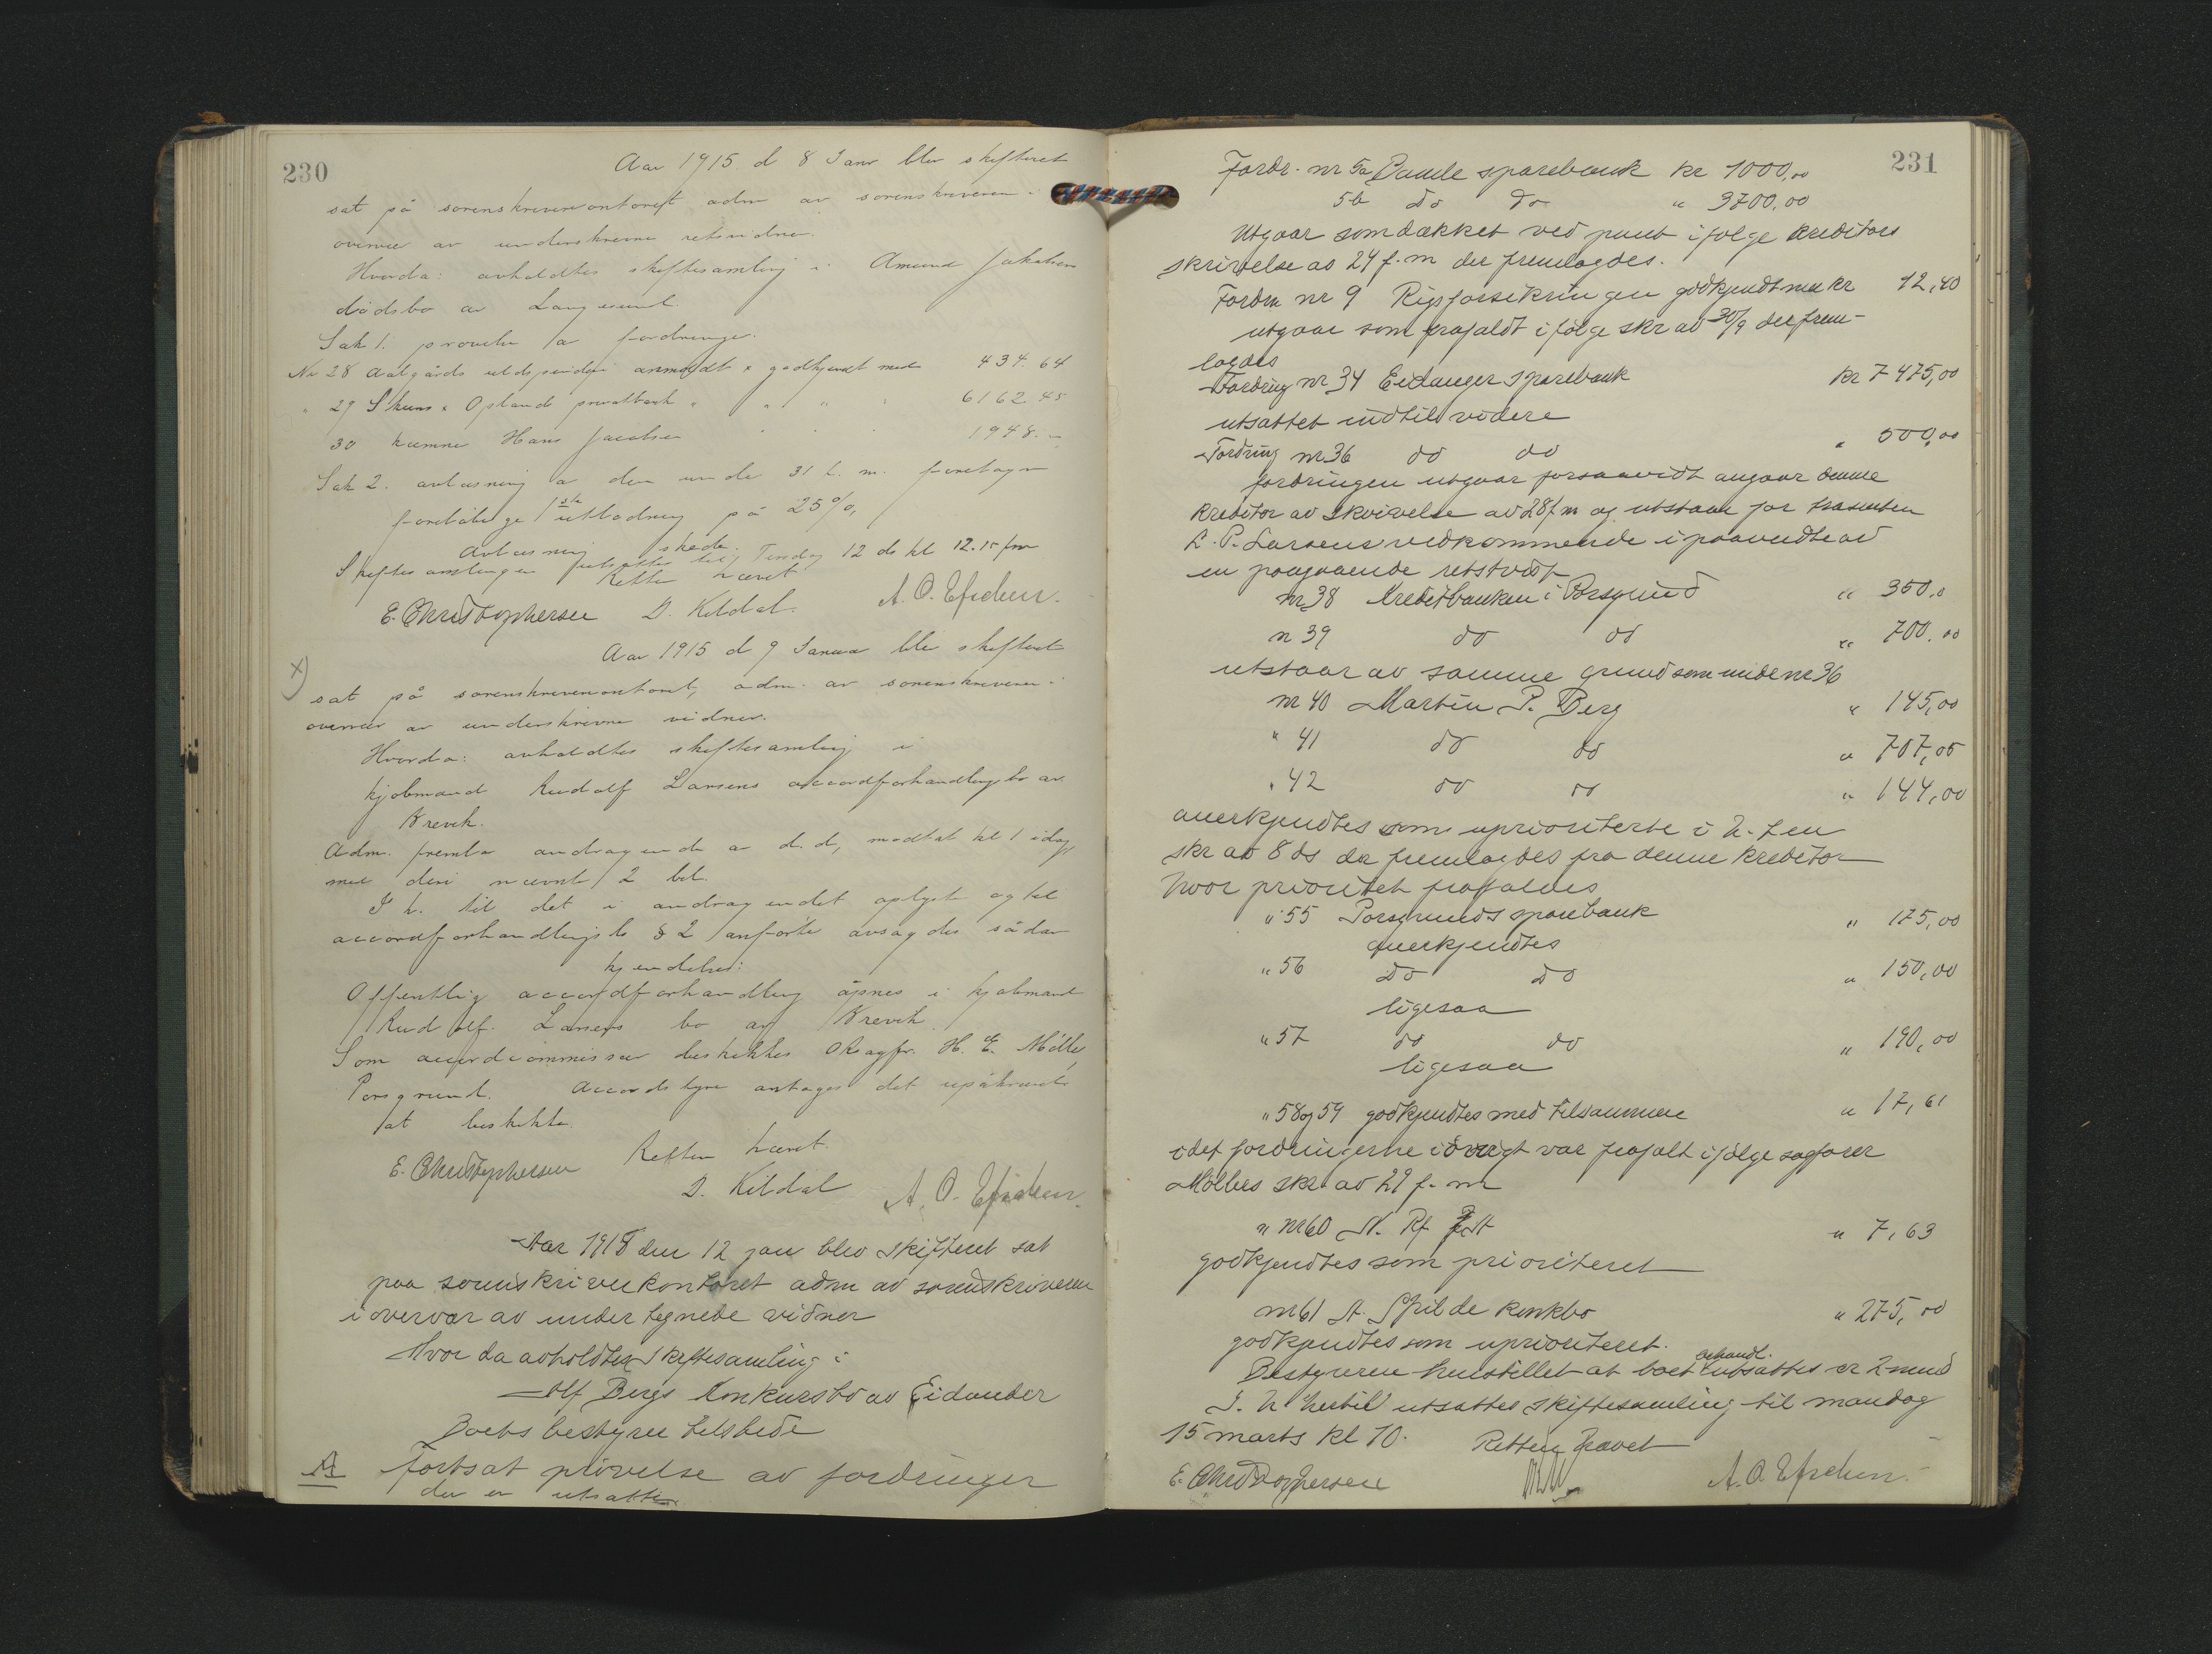 230
Aar 1915 d 8 Janr blev skifteret
sat på sorenskriverkontoret adm av sorenskriveren i
overvær av underskrevne retsvidner.
Hvorda: avholdtes skiftesamling i Amund Jakobsen
dødsbo av Langesund.
Sak 1. prøvelse av fordringer.
Nr 28 Aalgårds uldspinderi anmeldt x godkjendt med 434.64
" 29 Skiens x Oplands privatbank " " " " 6162.45
30 Hans Jacobsen " " " 1948.
Sak 2. avlæsning av den under 31 f. m. foretagne
foreløbige 1ste utlodning på 25%,
Avlæsning skede.
Skiftesamlingen utsattes til Tirsdag 12 ds kl 12.15 fm
Retten hævet
E. Christophersen D. Kildal. A. O. Efschen.
Aar 1915 d 9 Januar blev skifteret
x)
sat på sorenskriverkontoret, adm. av sorenskriveren i
overvær av underskrevne vidner.
Hvorda: avholdtes skiftesamling i
kjøbmand Rudolf Larsens accordforhandlingsbo av
Brevik.
Adm. fremla andragende av d.d, modtat kl 1 idag,
med deri nævnte 2 bil.
I h. til det i andragendet oplyste og til
accordforhandlingsl. § 2 anførte avsagdes sådan
kjendelse:
Offentlig accordforhandling åpnes i kjøbmand
Rudolf Larsens bo av Brevik.
Som accordcommissær beskikkes Oksagfr. H. E. Møller,
Porsgrund. Accordstyre antages det upåkrævet
at beskikke.
Retten hævet.
E. Christophersen D. Kildal A. O. Efschen.
Aar 1915 den 12 jan blev skifteret sat
paa sorenskriverkontoret adm av sorenskriveren
i overvær av undertegnede vidner
Hvor da avholdtes skiftesamling i
Alf Bergs konkursbo av Eidanger
Boets bestyrer tilstede
Fortsat prøvelse av fordringer
der er utsatte
231
Fordr. nr 5a Bamle sparebank kr 1000,00
5b do do " 3700,00
Utgaar som dækket ved pant ifølge kreditors
skrivelse av 24 f. m der fremlagdes.
Fordn nr 9 Rigsforsikringen godkjendt med kr 12,40
utgaar som frafaldt ifølge skr av 30/9 der frem-
lagdes
Fordring nr 34 Eidanger sparebank kr 7475,00
utsattet indtil videre
Fordring nr 36 do do " 500,00
fordringen utgaar forsaavidt angaar denne
kreditor av skrivelse av 28 f m og utstaar for trasenten
L. P. Larsens vedkommende i paavente av
en paagaaende retstvist
nr 38 Kreditbanken i Porsgrund " 350.0
n 39 do do " 700.00
utstaar av samme grund som under nr 36
nr 40 Martin P. Berg " 145,00
" 41 do do " 707,05
" 42 do do " 144,00
anerkjendtes som uprioriterte i h. t en
skr av 8 ds der fremlagdes fra denne kreditor
hvor prioritet frafaldes
" 55 Porsgrunds sparebank " 175,00
anerkjendtes
" 56 do do " 150,00
ligesaa
" 57 do do " 190,00
ligesaa
" 58 og 59 godkjendtes med tilsammen " 17,61
idet fordringerne iøvrigt var frafalt ifølge sagfører
Møllers skr. av 29 f. m
" nr 60 " 7,63
godkjendtes som prioriteret
nr 61 A. Spilde konkbo " 275,00
godkjendtes som uprioriteret.
Bestyreren henstillet at boet behandl. utsattes ca 2 mnd
I. h hertil utsattes skiftesamling til mandag
15 marts kl 10. Retten hævet
E. Christophersen A. O. Efschen.